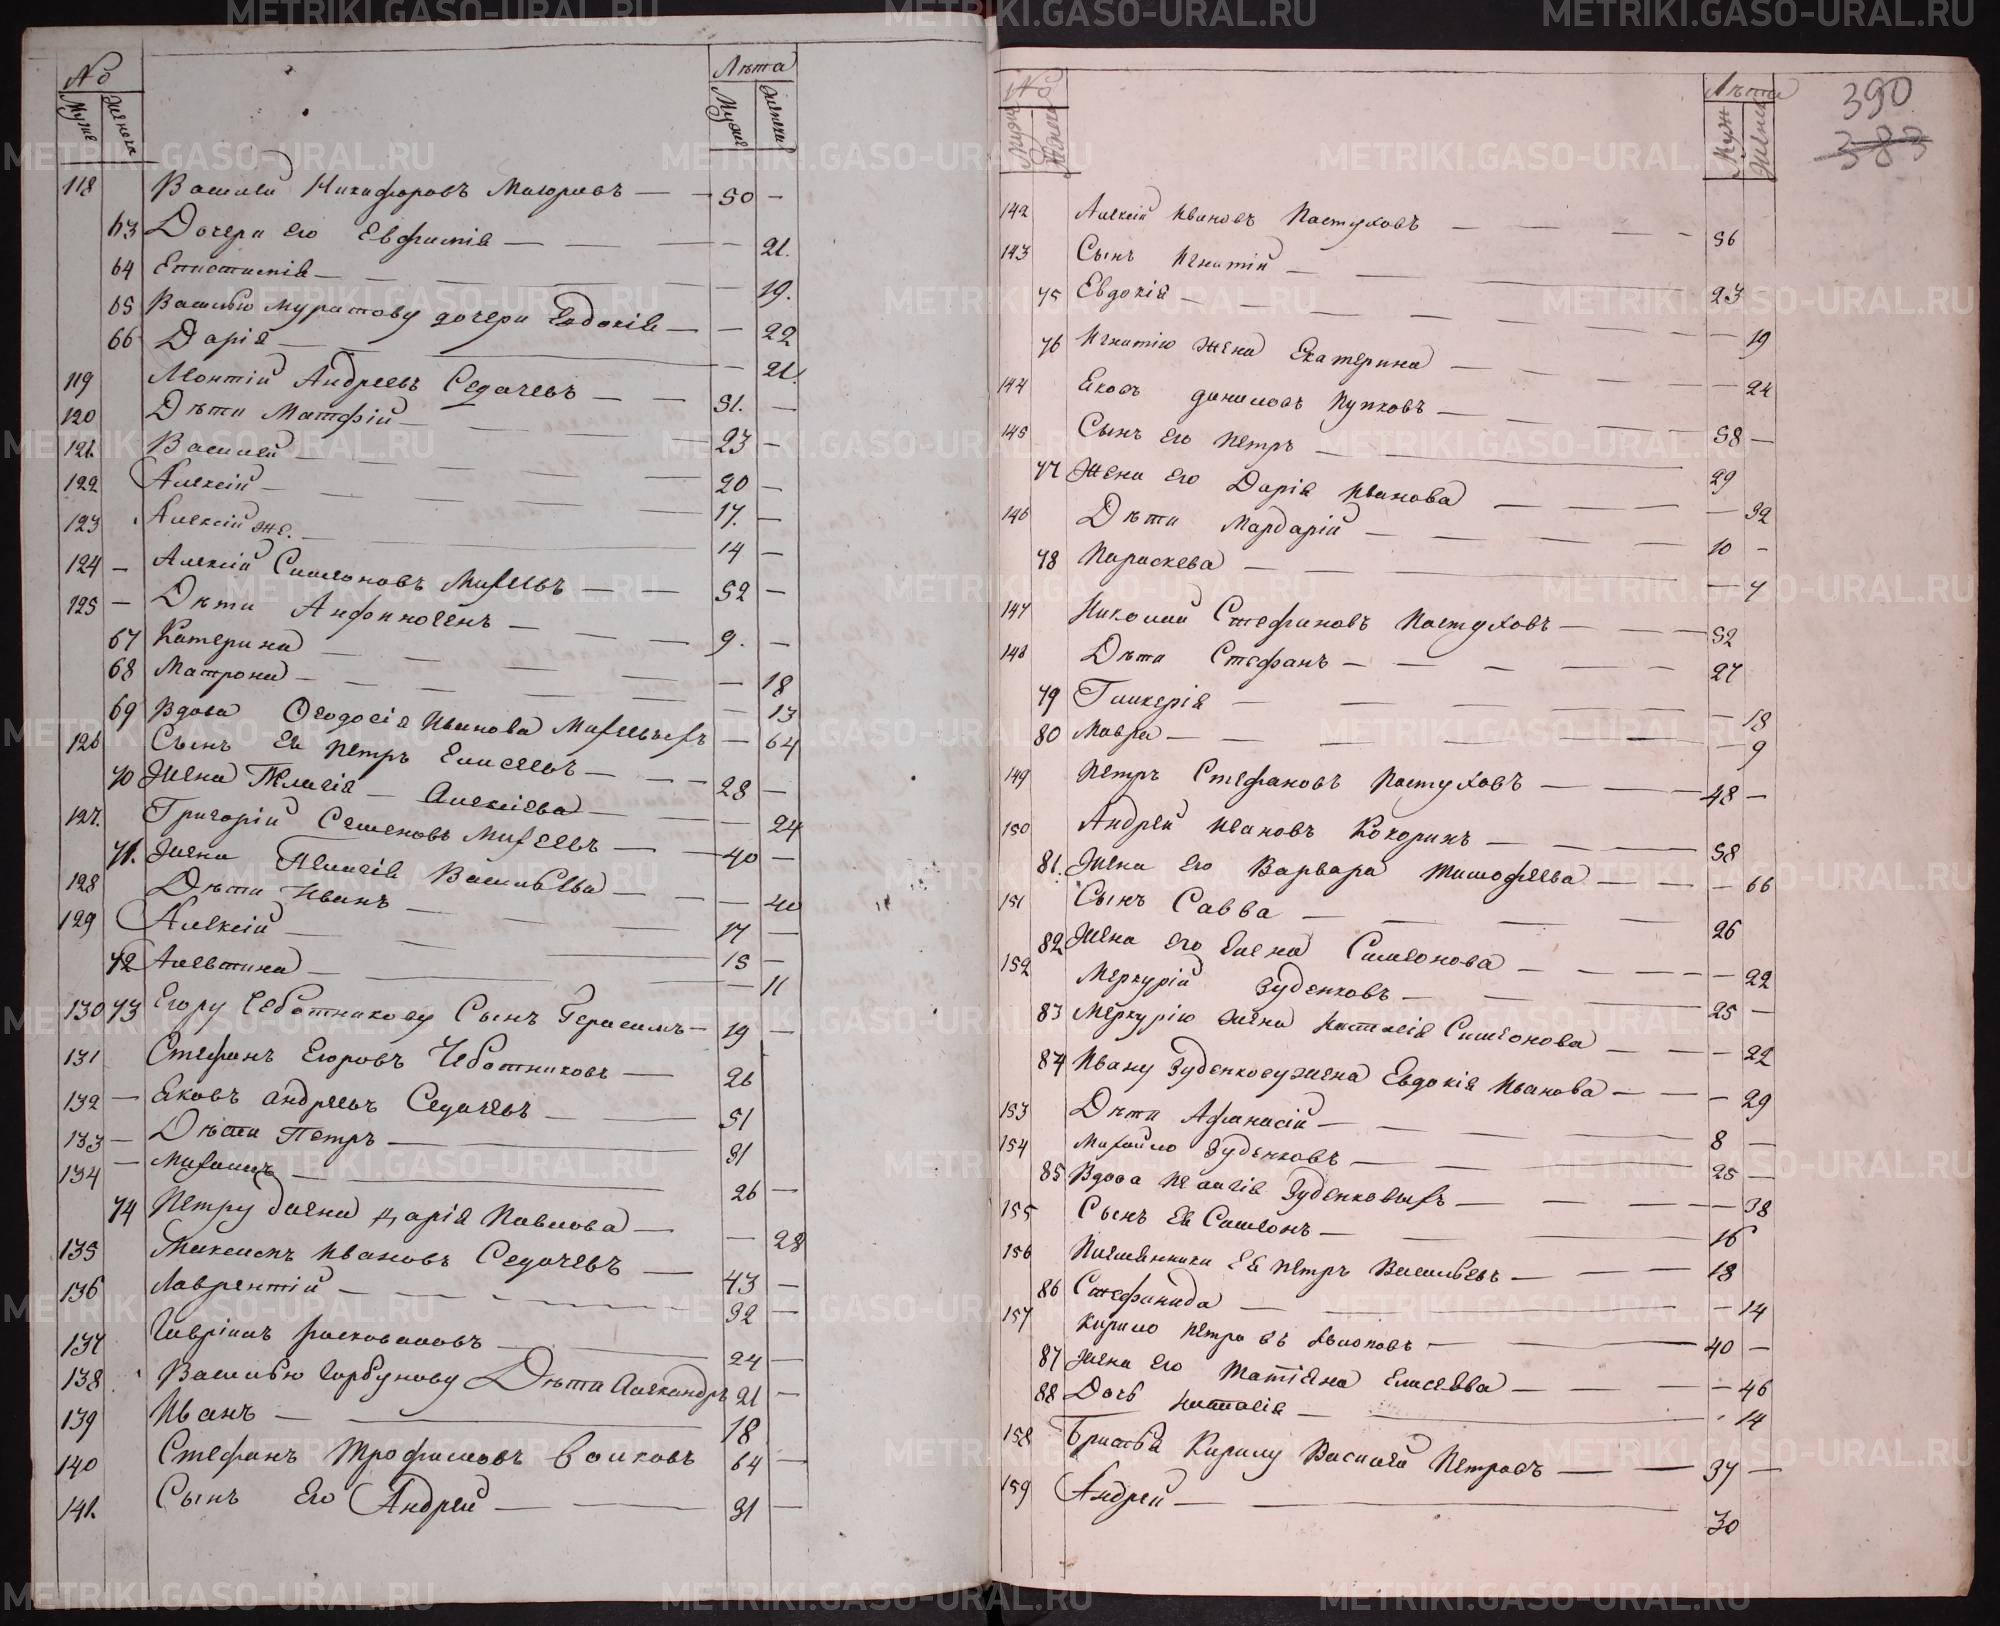 № Лѣта
Муже Женска Муже Женска
118 Василий Никифоровъ — — 50 —
63 Дочери его Евфимія — — — 21.
64 Епистимія — — — 19.
65 Василью Муратову дочери Евдокія — — 22
66 Дарія — — — 21.
119 Леонтій Андреевъ Седачевъ — — 51. —
120 Дѣти Матфій — — 23 —
121. Василий — — 20 —
122 Алексій — — 17. —
123 Алексій же. — — 14 —
124 — Алексій Симеоновъ Михеевъ — — 52 —
125 — Дѣти Анфиногенъ — — 9. —
67 Катерина — — — 18
68 Матрона — — — 13
69 Вдова Ѳеодосія Иванова Михеевыхъ — 64
126 Сынъ Ея Петръ Елисеевъ — — 28 —
70 Жена Пелагія — Алексіева — — 24
127. Григорій Семеновъ Михеевъ — — 40 —
71. Жена Пелагія Васильева — — — 40
128 Дѣти Иванъ — — 17 —
129 Алексій — — 15 —
72 Алевтина — — — 11
130 73 Егору Чеботникову Сынъ Герасимъ — 19 —
131 Стефанъ Егоровъ Чеботниковъ — 26
132 — Яковъ Андреевъ Седачевъ — 51
133 — Дѣти Петръ — 31
134 — Михаилъ — 26 —
74 Петру жена Дарія Павлова — — 28
135 Максимъ Ивановъ Седачевъ — 43 —
136 Лаврентій — — 32 —
137 Гавріилъ — 24 —
138 Василью Горбунову Дѣти Александръ 21 —
139 Иванъ — — 18
140 Стефанъ Трофимовъ Волковъ 64 —
141. Сынъ Его Андрей — — 31 —
№ Лѣта 390
Муж Женс 383
142 Алексій Ивановъ Пастуховъ — — 56
143 Сынъ Игнатій — — 23
75 Евдокія — — — 19
76 Игнатію Жена Екатерина — — — 24
144 Яковъ Даниловъ Пупковъ — — 58 —
145 Сынъ Его Петръ — — 29
77 Жена Его Дарія Иванова — — — 32
146 Дѣти Мардарій — — 10 —
78 Параскева — — — 7
147 Николай Стефановъ Пастуховъ — — 52
148 Дѣти Стефанъ — — 27
79 Гликерія — — — 18
80 Мавра — — — 9
149 Петръ Стефановъ Пастуховъ — — 48 —
150 Андрей Ивановъ Кокоринъ — — 58
81. Жена Его Варвара Тимофеева — — — 66
151 Сынъ Савва — — 26
82 Жена его Елена Симеонова — — — 22
152 Меркурій Зуденковъ — — 25 —
83 Меркурію жена Наталія Симеонова — — — 22
84 Ивану Зуденкову жена Евдокія Иванова — — — 29
153 Дѣти Афанасій — — 8 —
154 Михайло Зуденковъ — — 25 —
85 Вдова Пелагія Зуденковыхъ — — — 38
155 Сынъ Ея Симеонъ — — 16
156 Племянники Ея Петръ Васильевъ — — 18
86 Стефанида — — — 14
157 Кирило Петровъ — — 40 —
87 Жена Его Татіана Елисеева — — — 46
88 Дочь Наталія — — 14
158 Братья Кирилу Василій Петровъ — — 37 —
159 Андрей — — 30